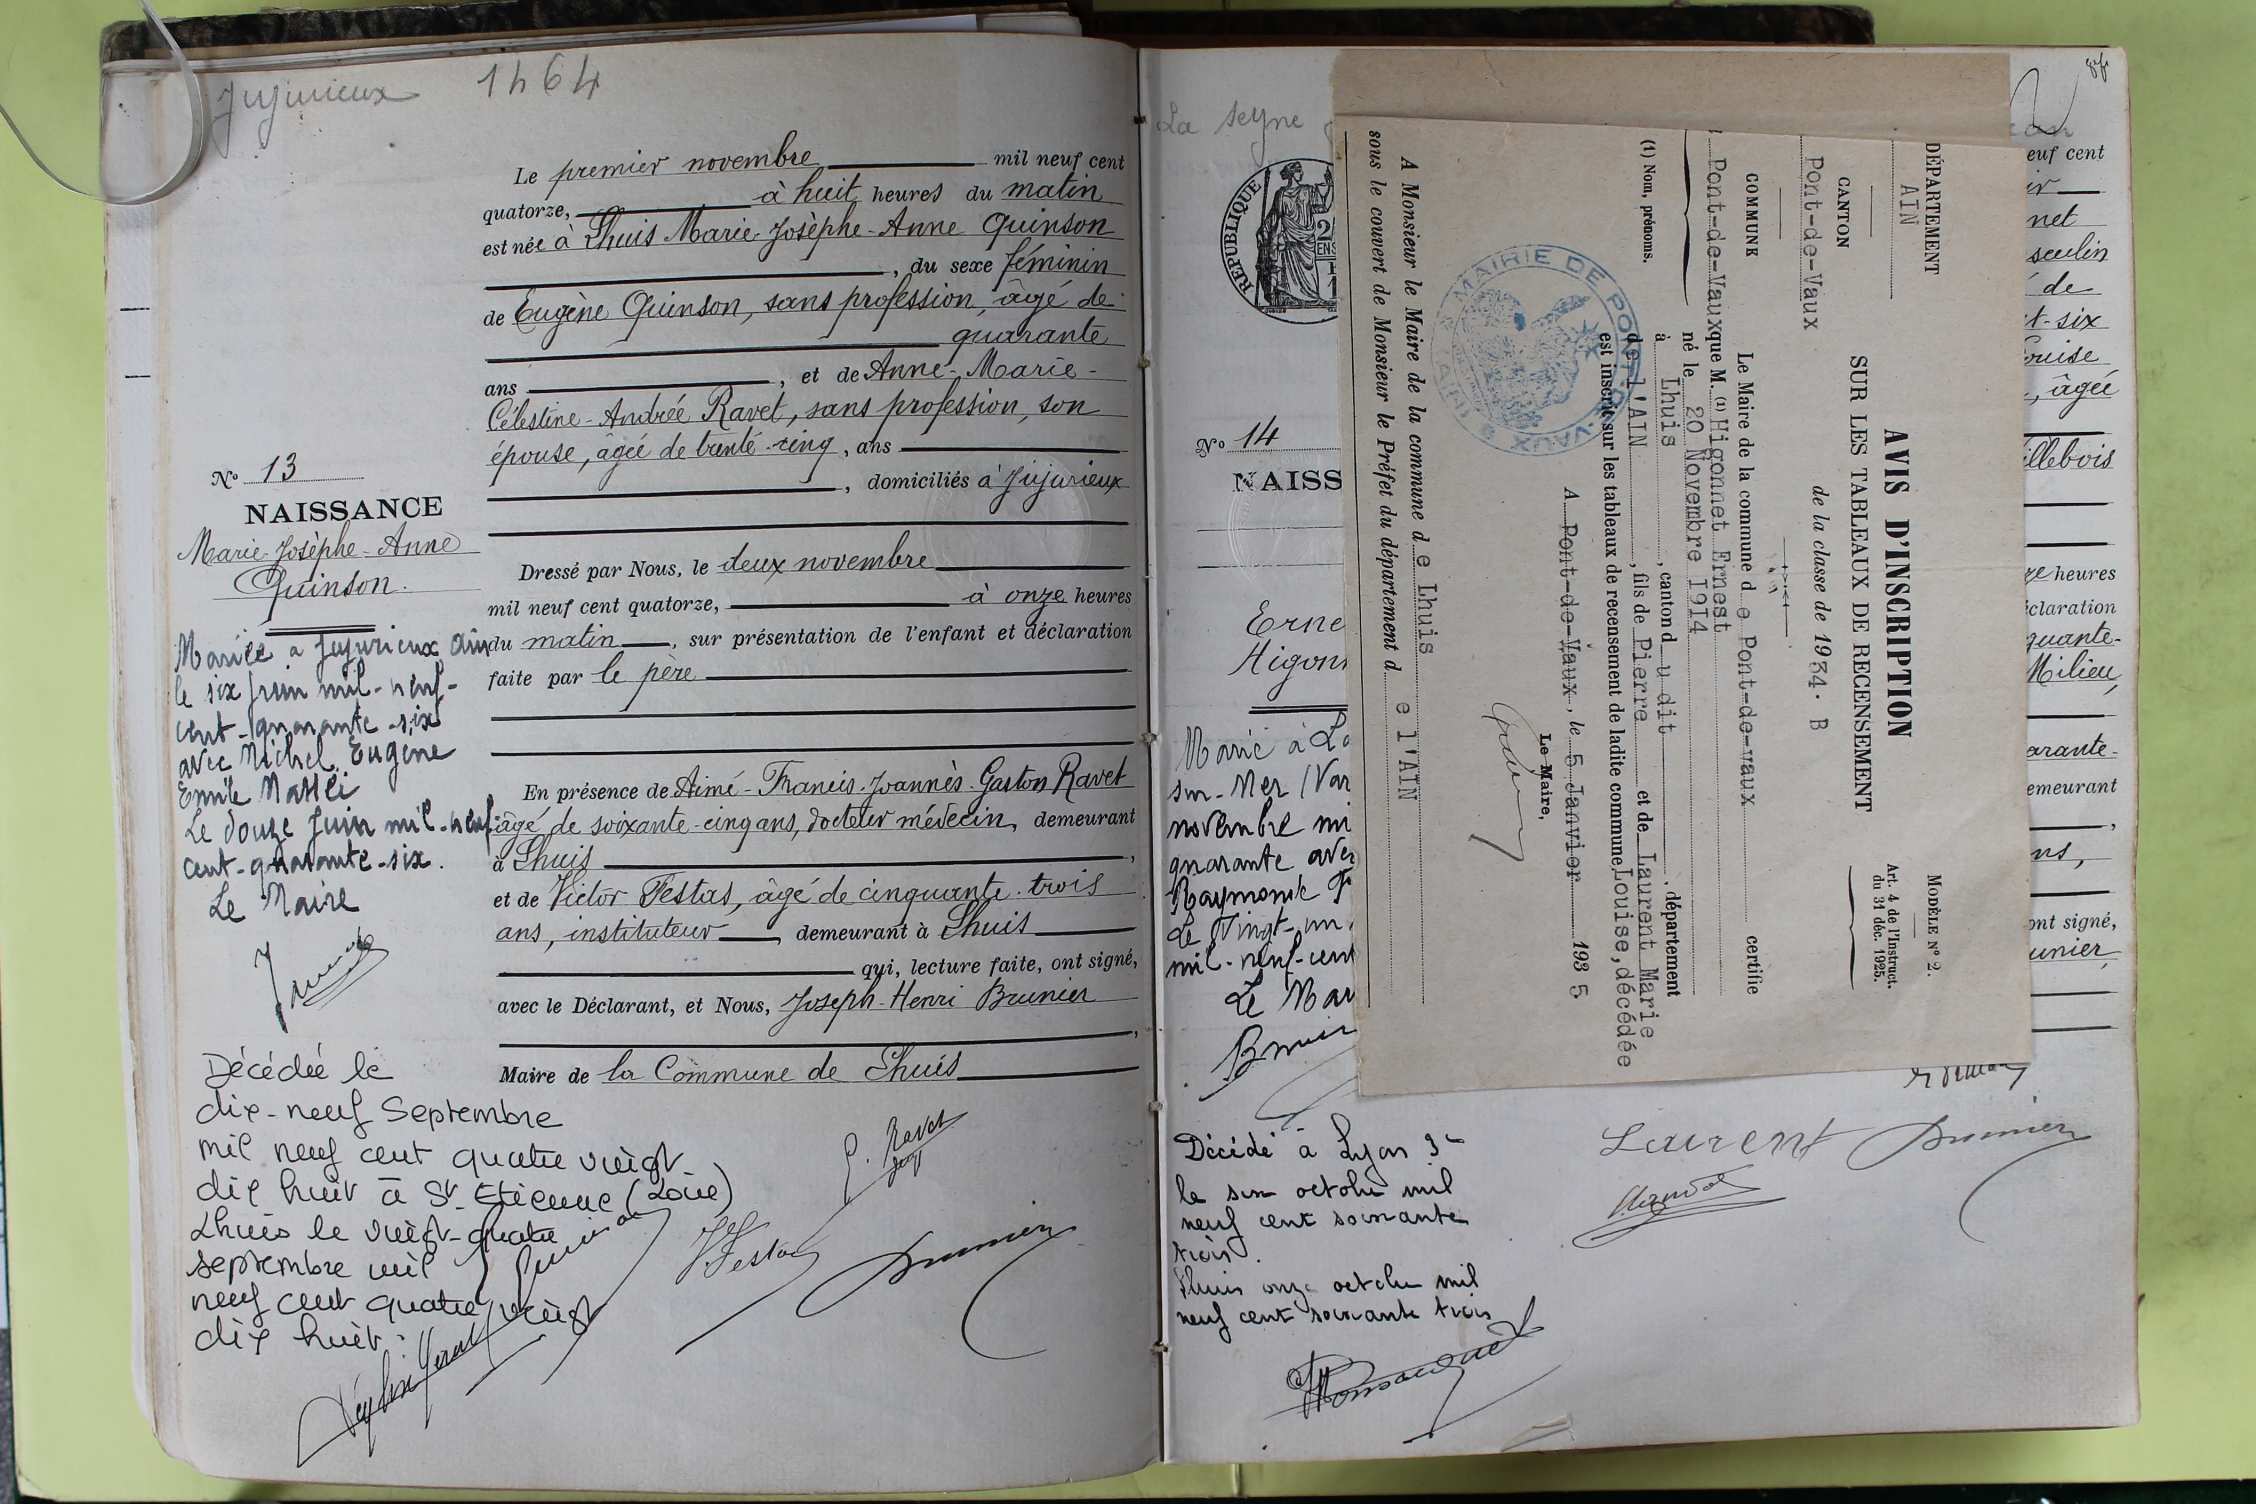 Jujurieux 1464
Le premier novembre mil neuf cent
quatorze, à huit heures du matin
est née à Lhuis Marie-Josèphe-Anne Quinson
, du sexe féminin
de Eugène Quinson, sans profession, âgé de
quarante
ans , et de Anne-Marie-
Célestine-Andrée Ravet, sans profession, son
épouse, âgée de trente-cinq, ans
, domiciliés à Jujurieux
Dressé par Nous, le deux novembre
mil neuf cent quatorze, à onze heures
du matin , sur présentation de l'enfant et déclaration
faite par le père
En présence de Aimé-Francis-Joannès-Gaston Ravet
âgé de soixante-cinq ans, docteur médecin, demeurant
à Lhuis ,
et de Victor Festas, âgé de cinquante-trois
ans, instituteur , demeurant à Lhuis
qui, lecture faite, ont signé,
avec le Déclarant, et Nous, Joseph-Henri Brunier
,
Maire de la Commune de Lhuis
G. Ravet
Festas
Brunier
N° 13
NAISSANCE
Marie-Josèphe-Anne
Quinson.
Mariée à Jujurieux Ain
le six juin mil-neuf-
cent-quarante-six
avec Michel Eugène
Emile
Le douze juin mil-neuf-
cent-quarante-six.
Le Maire
Décédée le
dix-neuf Septembre
mil neuf cent quatre vingt
dix huit à St Etienne (Loire)
Lhuis le vingt-quatre
septembre mil
neuf cent quatre vingt
dix huit.
La Seyne
REPUBLIQUE
N° 14
NAISS
Erne
Higonn
Marié à La
sur-Mer (Var
novembre mi
quarante avec
Raymonde F
Le vingt-un
mil-neuf-cent
Le Mai
Décédé à Lyon 3e
le six octobre mil
neuf cent soixante
trois.
Lhuis onze octobre mil
neuf cent soixante trois
DÉPARTEMENT
AIN
CANTON
Pont-de-Vaux
COMMUNE
Pont-de-Vaux
(1) Nom, prénoms.
MODÈLE N° 2.
Art. 4 de l'Instruct.
du 31 déc. 1925.
AVIS D'INSCRIPTION
SUR LES TABLEAUX DE RECENSEMENT
de la classe de 1934. B
Le Maire de la commune de Pont-de-vaux certifie
que M. (1) Higonnet Ernest
né le 20 Novembre 1914
à Lhuis , canton du dit , département
de l'AIN , fils de Pierre et de Laurent Marie
Louise, décédée
est inscrit sur les tableaux de recensement de ladite commune.
A Pont-de-Vaux, le 5 Janvier 1935
Le Maire,
MAIRIE DE PONT-DE-VAUX
A Monsieur le Maire de la commune de Lhuis
sous le couvert de Monsieur le Préfet du département de l'AIN
euf cent
net
sculin
de
t-six
ouise
, âgée
illebois
ze heures
claration
quante-
Milieu,
arante-
emeurant
,
ns,
ont signé,
unier
Laurent
Brunier